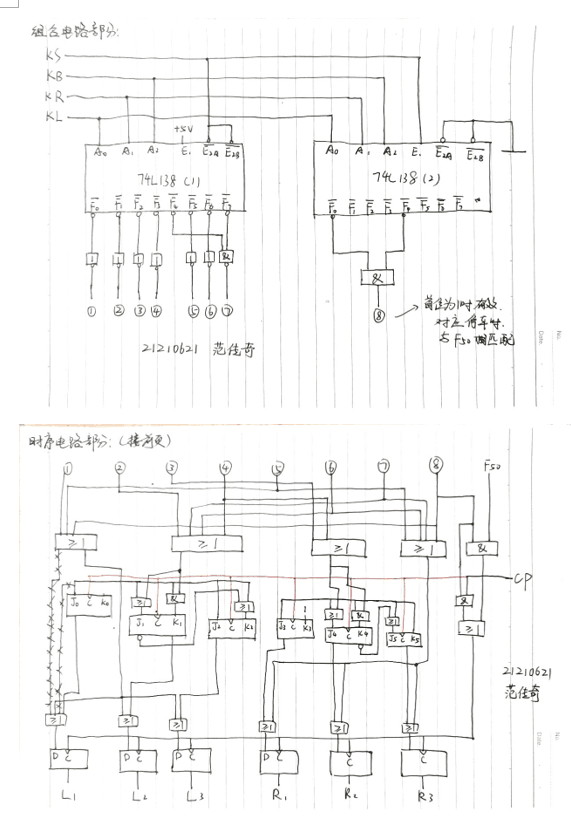 组合电路部分:
KS
KB
KR
KL
+5V
A0 A1 A2 E1 E2A E2B
74L138 (1)
F0 F1 F2 F3 F4 F5 F6 F7
1 1 1 1 1 1 &
① ② ③ ④ ⑤ ⑥ ⑦
A0 A1 A2 E1 E2A E2B
74L138 (2)
F0 F1 F2 F3 F4 F5 F6 F7
&
⑧
为1时有效.
对应停车时.
与F50 匹配
21210621 范佳奇
No.
Date
时序电路部分:(接前页)
① ② ③ ④ ⑤ ⑥ ⑦ ⑧ F50
≥1 ≥1 ≥1 ≥1 &
CP
≥1 & ≥1 ≥1 & ≥1 & ≥1
J0 C K0 J1 C K1 J2 C K2 J3 C K3 J4 C K4 J5 C K5
1
21210621
范佳奇
≥1 ≥1 ≥1 ≥1 ≥1 ≥1
D C D C D C D C C C
L1 L2 L3 R1 R2 R3
No.
Date